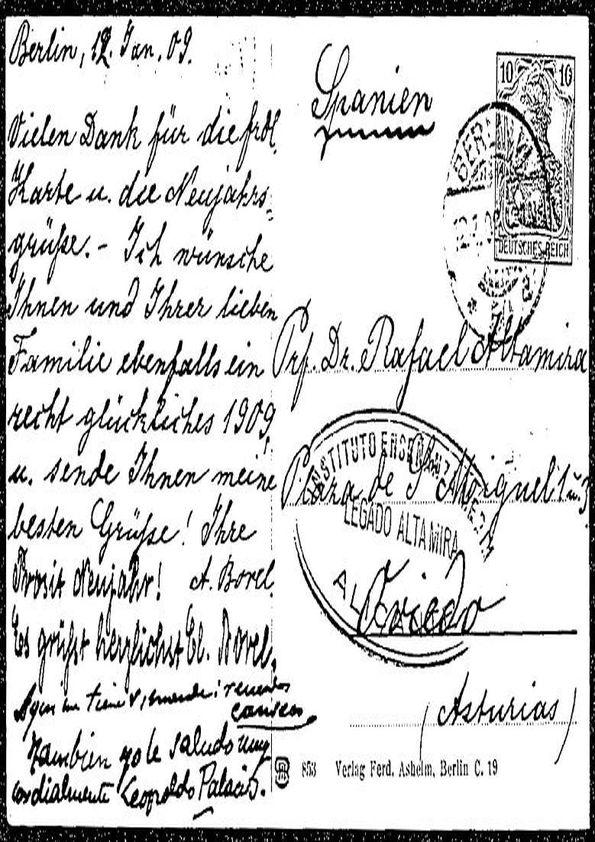 Berlin, 12. Jan. 09.
Vielen Dank für die frdl.
Karte u. die Neujahrs-
grüße. - Ich wünsche
Ihnen und Ihrer lieben
Familie ebenfalls ein
recht glückliches 1909,
u. sende Ihnen meine
besten Grüße! Ihre
Prosit Neujahr! A. Borel.
Es grüßt herzlichst El. Borel.
Aqui me tiene V,
cariñoso
Tambien yo le saludo muy
cordialmente Leopoldo Palacios.
Spanien
10 10
DEUTSCHES REICH
BERLIN
12.1.09
Prf. Dr. Rafael Altamira
Plaza de S Miguel 1 u. 3
Oviedo
(Asturias)
INSTITUTO
LEGADO ALTAMIRA
853 Verlag Ferd. Ashelm, Berlin C. 19